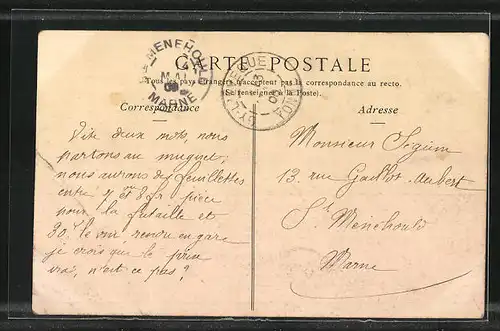 CARTE POSTALE
Tous les pays étrangers n'acceptent pas la correspondance au recto.
(Se renseigner à la Poste).
Correspondance
Adresse
Vite deux mots, nous
partons au muguet;
nous aurons des feuillettes
entre 7 et 8 fr pièce
pour la futaille et
30. le vin rendu en gare
je crois que le prix
vrai, n'est ce pas?
Monsieur
13, rue Gaillot-Aubert
Ste Ménéhould
Marne
MENEHOULD
MARNE